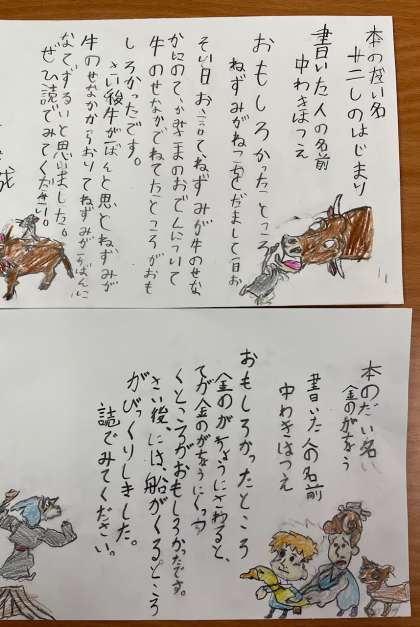 本のだい名
十二しのはじまり
書いた人の名前
中わきはつえ
おもしろかったところ
ねずみがねこをだまして一日お
そい日お言ってねずみが牛のせな
かにのって、かみさまのおでんについて
牛のせなかでねてたところがおも
しろかったです。
さい後牛が一ばんと思とねずみが
牛のせなかからおりてねずみが一ばんに
なてずるいと思いました。
ぜひ読でみてください。
本のだい名
金のがちょう
書いた人の名前
中わきはつえ
おもしろかったところ
金のがちょうにさわると、
てが金のがちょうにくっつ
くところがおもしろかったです。
さい後、には、船がくるところ
がびっくりしました。
読でみてください。